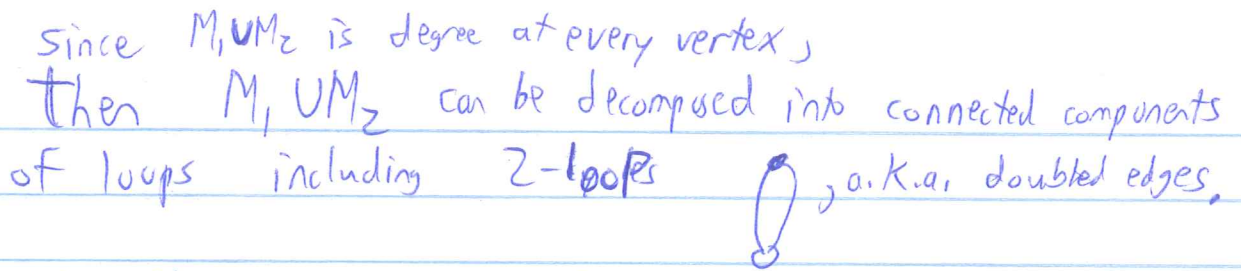 since M₁UM₂ is degree at every vertex,
then M₁UM₂ can be decomposed into connected components
of loops including 2-loops , a.k.a. doubled edges.